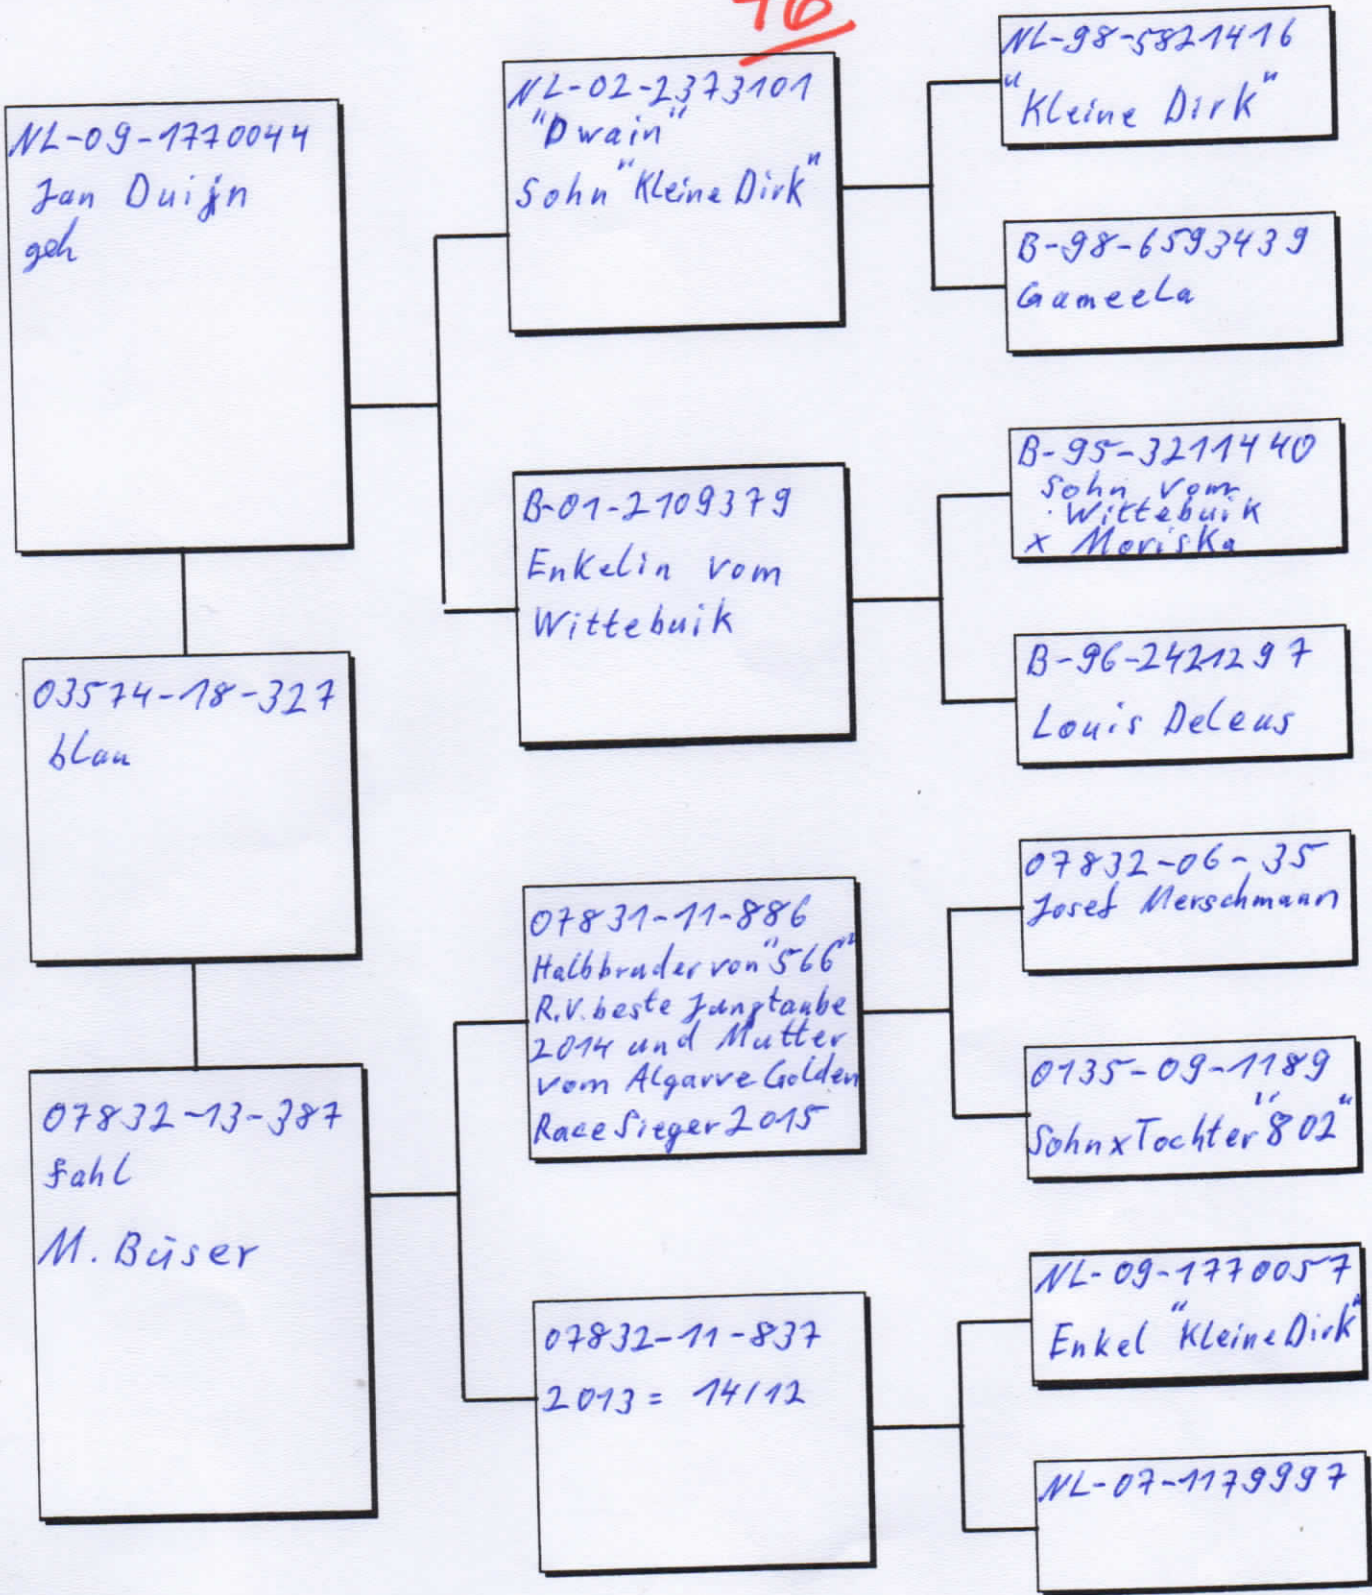 46
NL-09-1770044
Jan Duijn
geh
03574-18-327
blau
07832-13-387
fahl
M. Büser
NL-02-2373101
"Dwain"
Sohn "Kleine Dirk"
B-01-2109379
Enkelin vom
Wittebuik
07831-11-886
Halbbruder von "566"
R.V. beste Jungtaube
2014 und Mutter
vom Algarve Golden
Race Sieger 2015
07832-11-837
2013 = 14/12
NL-98-5821416
"Kleine Dirk"
B-98-6593439
Gameela
B-95-3211440
Sohn vom
Wittebuik
x Moriska
B-96-2421297
Louis Deleus
07832-06-35
Josef Merschmann
0135-09-1189
Sohn x Tochter "802"
NL-09-1770057
Enkel "Kleine Dirk"
NL-07-1179997